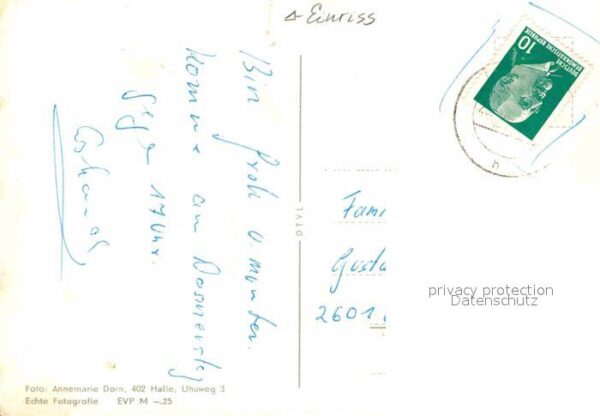 Einriss
Bin froh u. munter.
Komme am Donnerstag
gegen 17 Uhr.
DEUTSCHE
DEMOKRATISCHE REPUBLIK
10
Fami
2601
privacy protection
Datenschutz
Foto: Annemarie Dorn, 402 Halle, Uhuweg 3
Echte Fotografie EVP M –.25